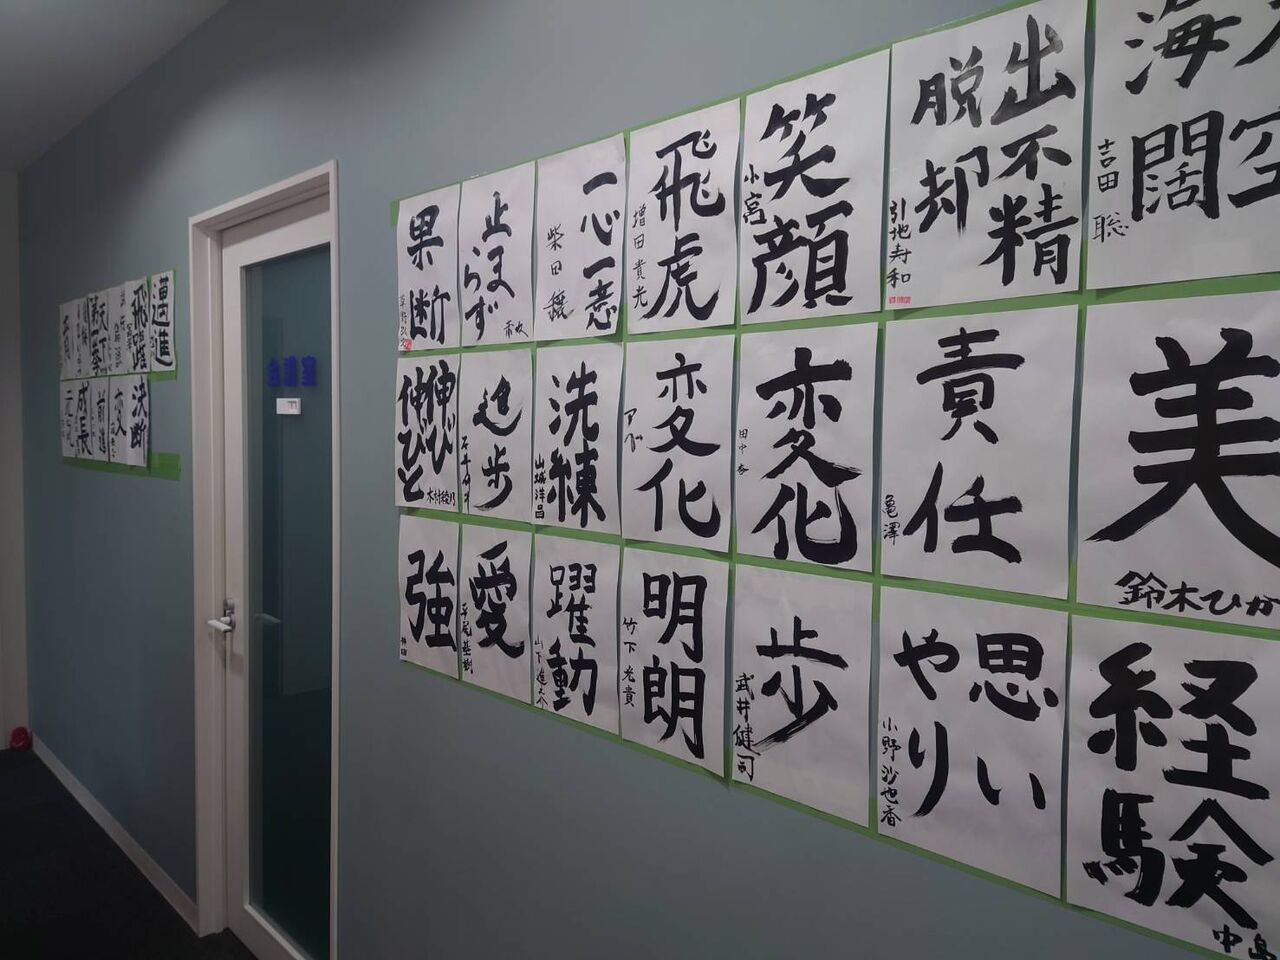 邁進
飛躍
天下
第一
決断
変
前進
成長
会議室
果断
止まらず
一心一意
柴田 穣
飛虎
増田貴光
笑顔
小宮
出不精
脱却
引地寿和
海闊
空
吉田 聡
伸び
伸びと
木村絵乃
進歩
洗練
山城洋昌
変化
アベ
変化
田中 杏
責任
亀澤
美
鈴木ひか
強
神田
愛
平尾基樹
躍動
明朗
竹下光貴
歩
武井健司
思い
やり
小野沙也香
経験
中島